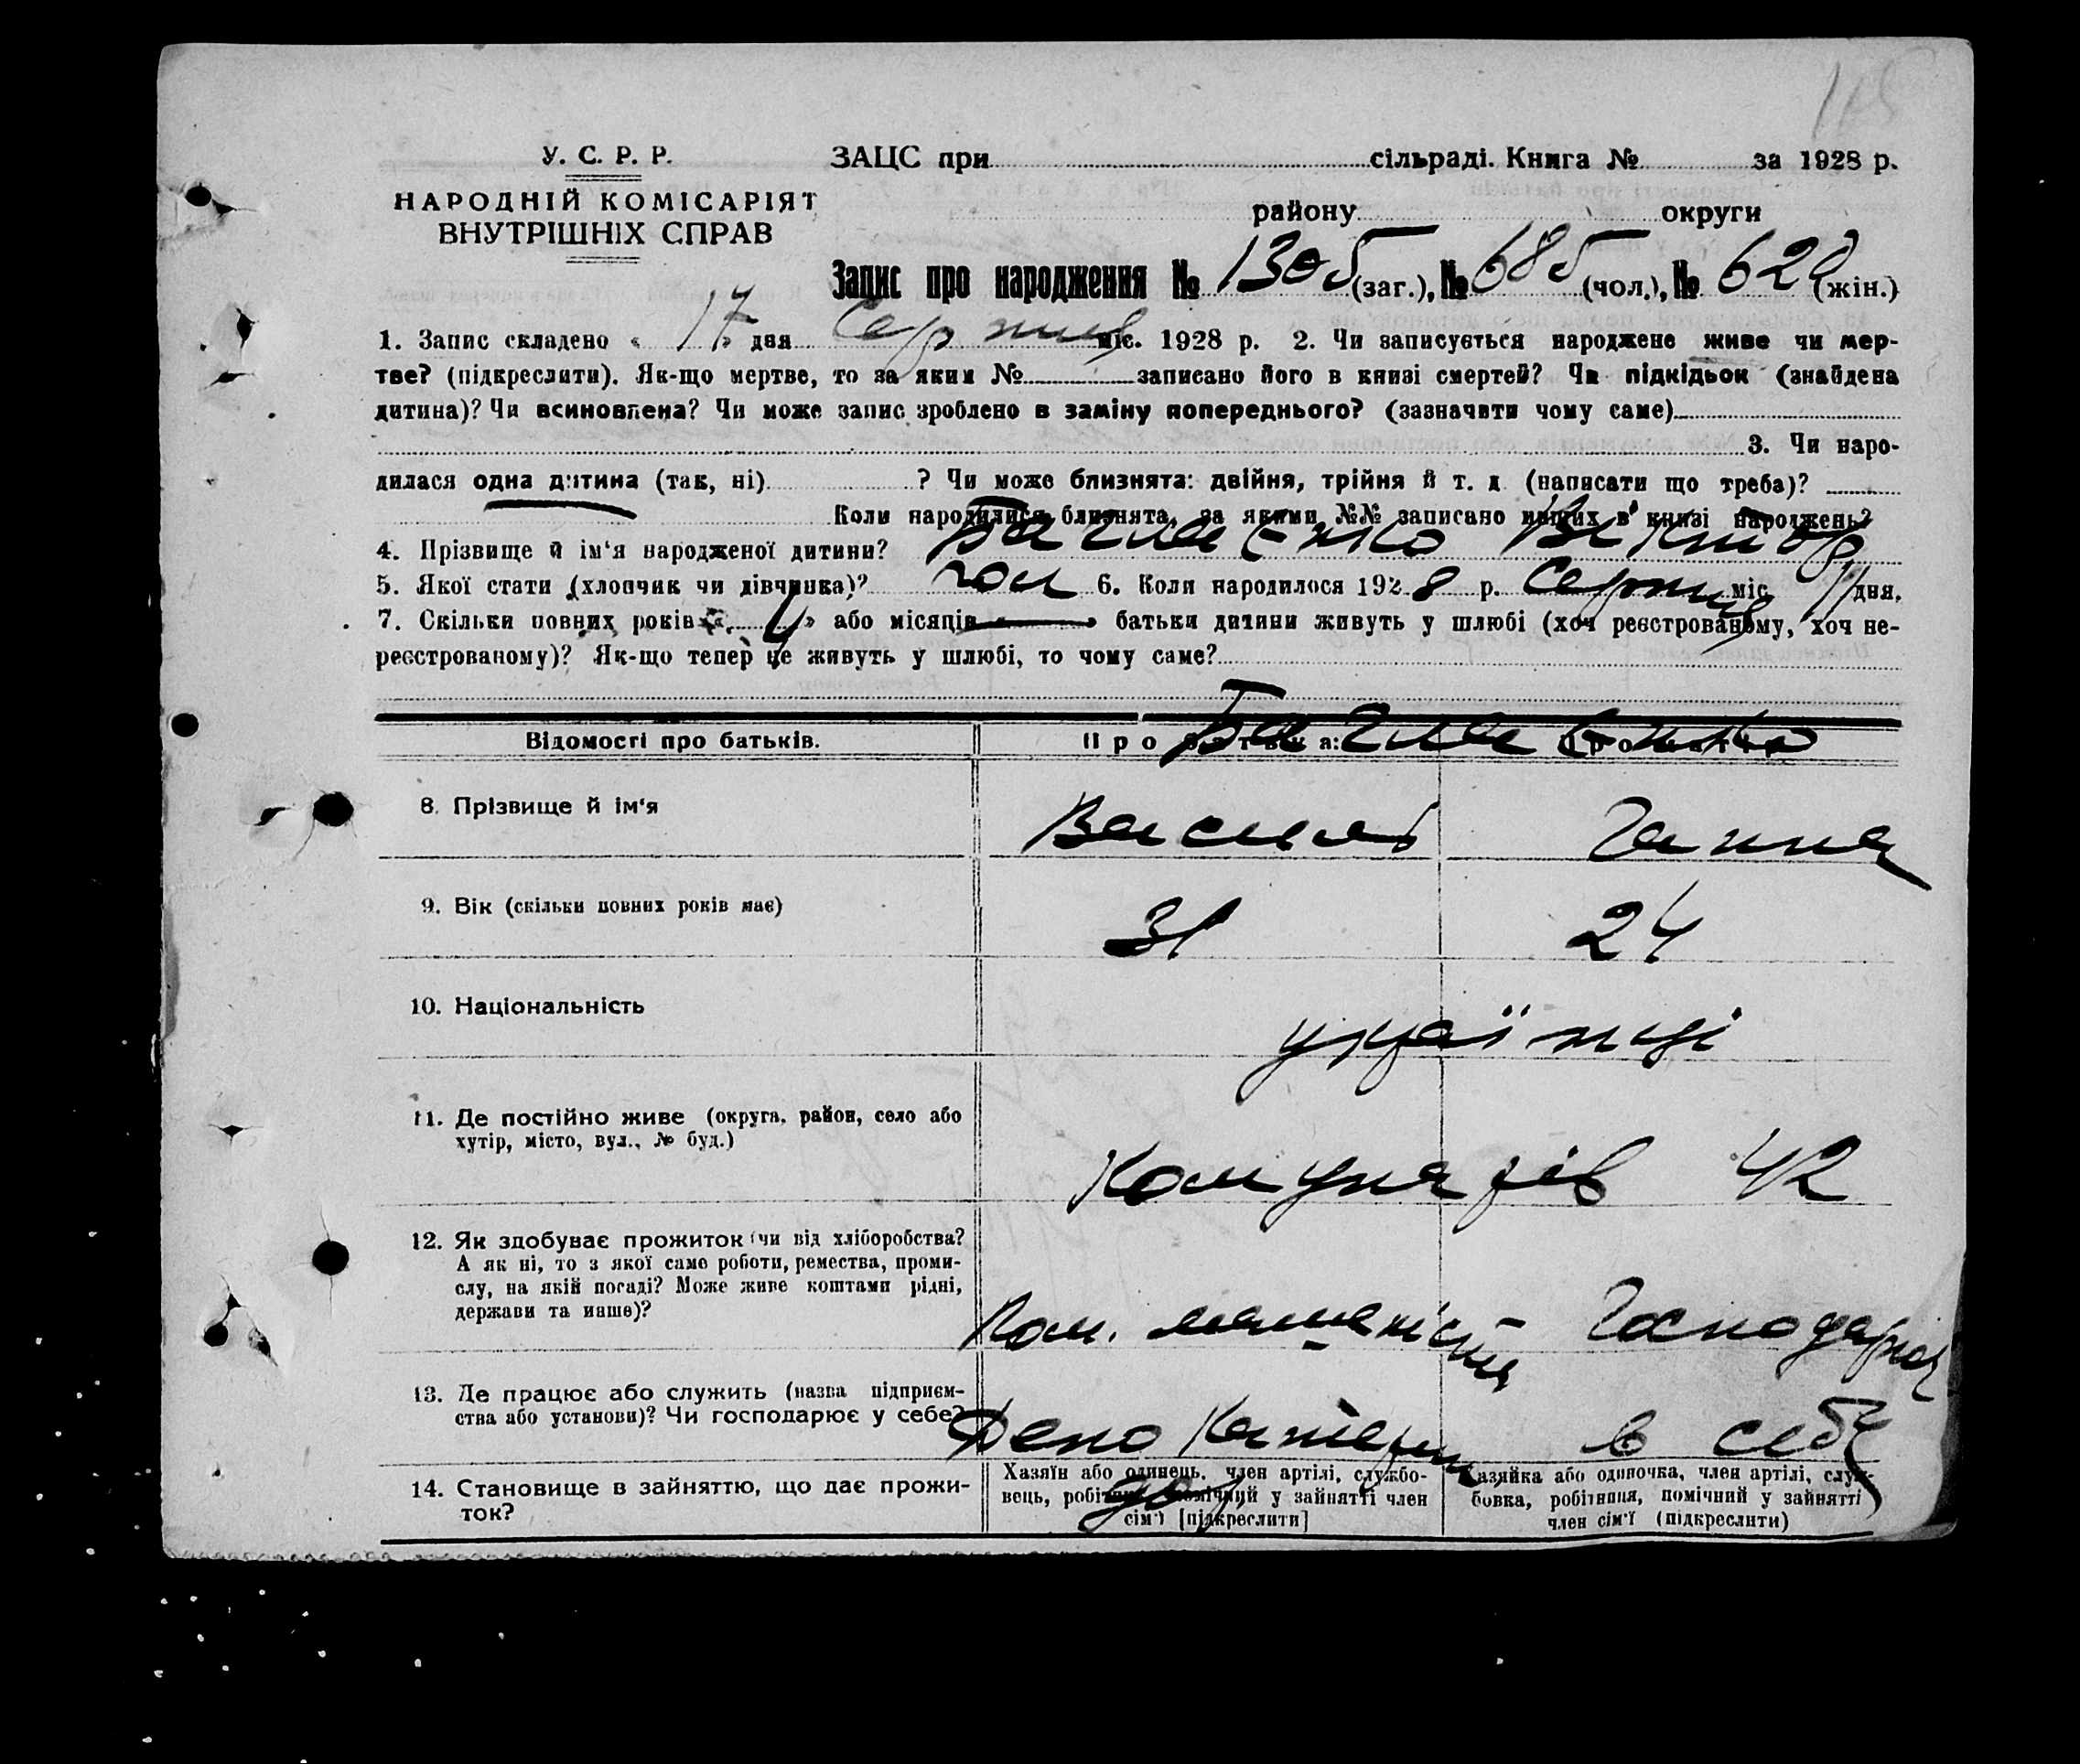 115
У. С. Р. Р.
НАРОДНІЙ КОМІСАРІЯТ
ВНУТРІШНІХ СПРАВ
ЗАЦС при сільраді. Книга № за 1928 р.
району округи
Запис про народження № 1305 (заг.), № 685 (чол.), № 620 (жін.)
1. Запис складено « 17 » дня Серпня міс. 1928 р. 2. Чи записується народжене живе чи мер-
тве? (підкреслити). Як-що мертве, то за яким № записано його в книзі смертей? Чи підкідьок (знайдена
дитина)? Чи всиновлена? Чи може запис зроблено в заміну попереднього? (зазначити чому саме)
3. Чи наро-
дилася одна дитина (так, ні) ? Чи може близнята: двійня, трійня й т. д. (написати що треба)?
Коли народилися близнята, за якими №№ записано инших в книзі народжень?
4. Прізвище й ім'я народженої дитини? Виктор
5. Якої стати (хлопчик чи дівчинка)? чол 6. Коли народилося 1928 р. Серпня міс. 11 дня.
7. Скільки повних років « 4 » або місяців « — » батьки дитини живуть у шлюбі (хоч реєстрованому, хоч не-
реєстрованому)? Як-що тепер не живуть у шлюбі, то чому саме?
Відомості про батьків. Про батька: Про матір
8. Прізвище й ім'я Василь Ганна
9. Вік (скільки повних років має) 31 24
10. Національність українці
11. Де постійно живе (округа, район, село або
хутір, місто, вул., № буд.)
Комунарів 42
12. Як здобуває прожиток (чи від хліборобства?
А як ні, то з якої само роботи, ремества, проми-
слу, на якій посаді? Може живе коштами рідні,
держави та инше)?
Пом. машиніста Господарка
13. Де працює або служить (назва підприєм-
ства або установи)? Чи господарює у себе?
Депо в себе
14. Становище в зайняттю, що дає прожи-
ток?
Хазяїн або одинець, член артілі, службо-
вець, робітник, помічний у зайнятті член
сім'ї [підкреслити]
Хазяйка або одиночка, член артілі, служ-
бовка, робітниця, помічний у зайнятті
член сім'ї (підкреслити)